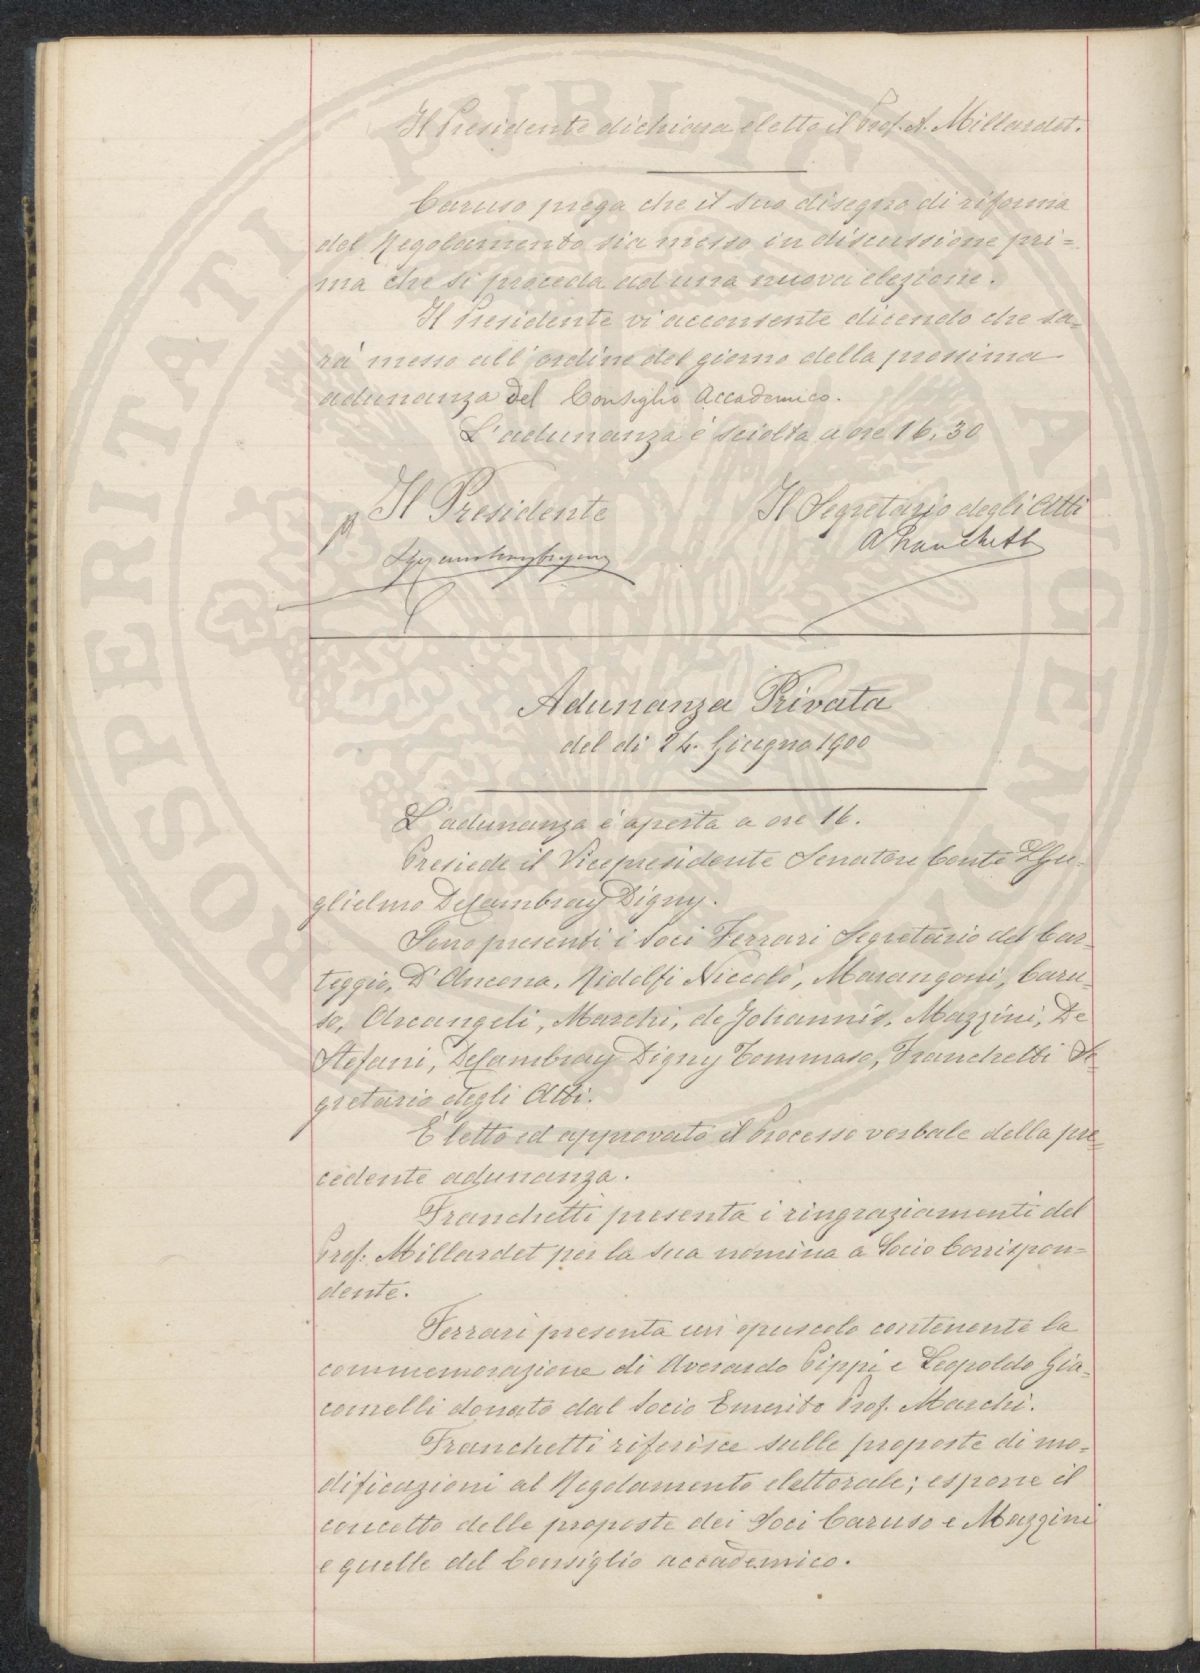 Il Presidente dichiara eletto il Prof. A. Millardet.
Caruso prega che il suo disegno di riforma
del Regolamento sia messo in discussione pri=
ma che si proceda ad una nuova elezione.
Il Presidente vi acconsente dicendo che sa-
rà messo all'ordine del giorno della prossima
adunanza del Consiglio Accademico.
L'adunanza è sciolta a ore 16.30
Il Presidente
Il Segretario degli Atti
A Franchetti
Adunanza Privata
del dì 24. Giugno 1900
L'adunanza è aperta a ore 16.
Presiede il Vicepresidente Senatore Conte LGu-
glielmo DeCambray Digny.
Sono presenti i Soci Ferrari Segretario del Car-
teggio, D'Ancona, Ridolfi Niccolò, Marangoni, Caru-
so, Arcangeli, Marchi, de Johannis, Mazzini, De
Stefani, DeCambray Digny Tommaso, Franchetti Se-
gretario degli Atti.
È letto ed approvato il Processo verbale della pre-
cedente adunanza.
Franchetti presenta i ringraziamenti del
Prof. Millardet per la sua nomina a Socio Corrispon=
dente.
Ferrari presenta un opuscolo contenente la
commemorazione di Averardo Pippi e Leopoldo Gia-
comelli donato dal Socio Emerito Prof. Marchi.
Franchetti riferisce sulle proposte di mo-
dificazioni al Regolamento elettorale; espone il
concetto delle proposte dei Soci Caruso e Mazzini
e quelle del Consiglio accademico.
PROSPERITATI PUBLICAE AUGENDAE